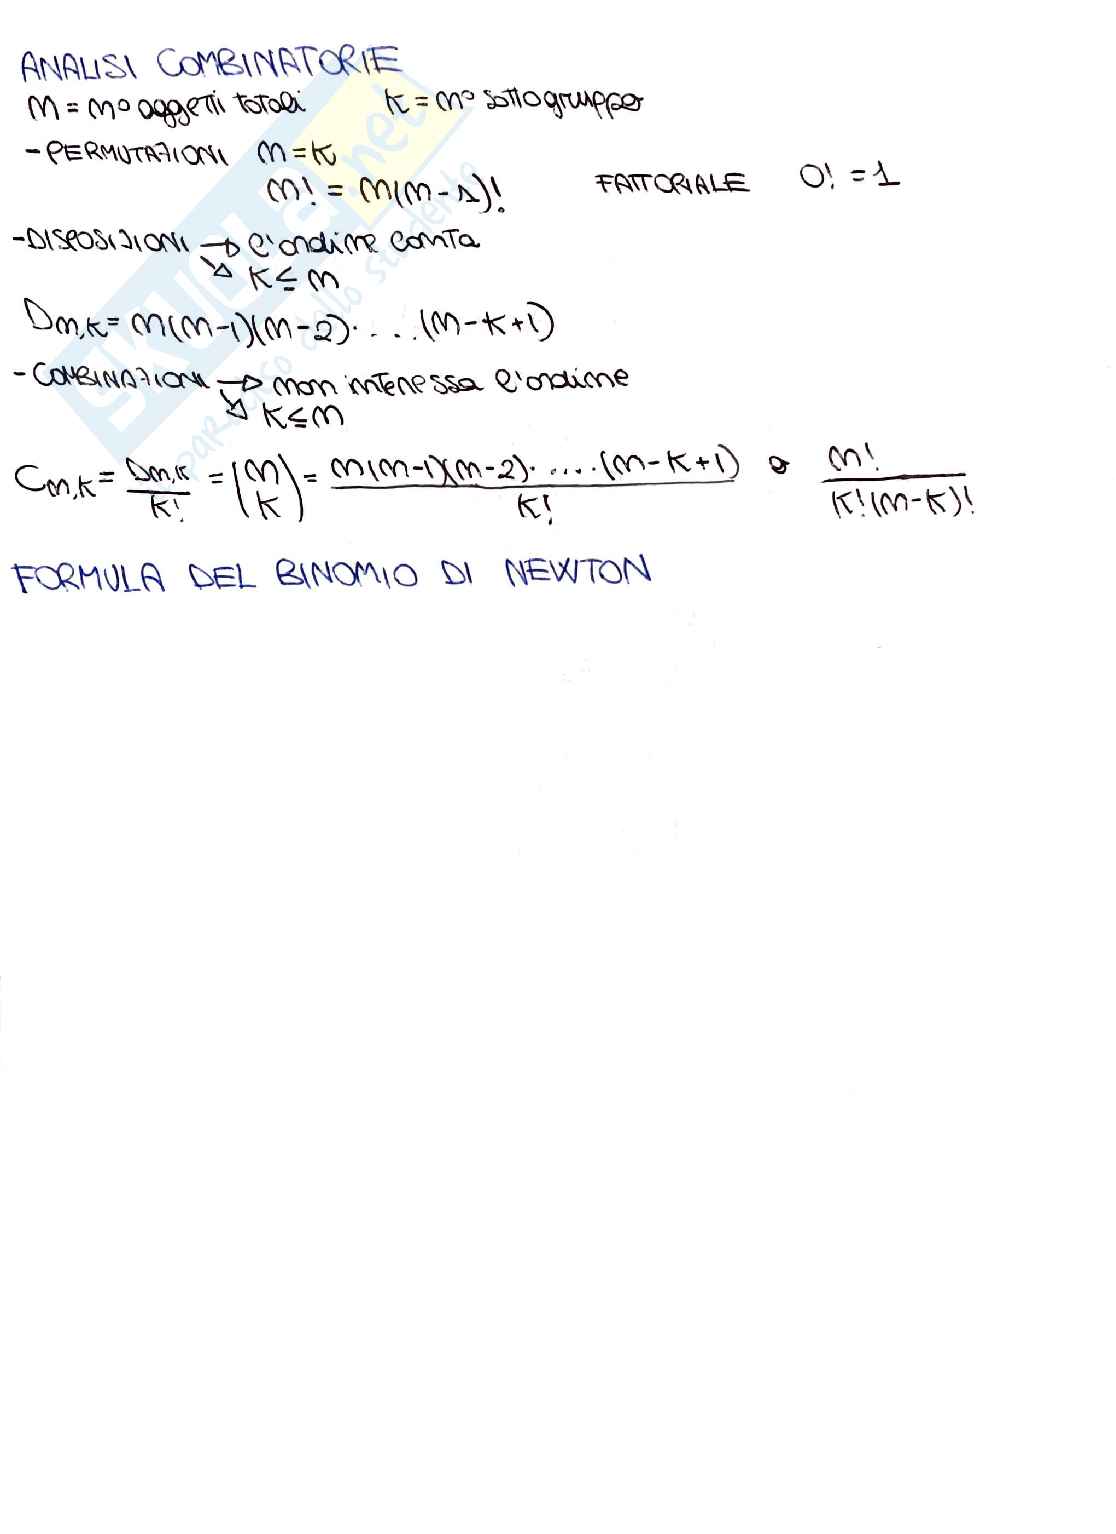 ANALISI COMBINATORIE
n = n° oggetti totali K = n° sottogruppo
- PERMUTAZIONI n = K
n! = n(n-1)! FATTORIALE 0! = 1
- DISPOSIZIONI → l'ordine conta
↘ K ≤ n
Dn,K = n(n-1)(n-2)· ... (n-K+1)
- COMBINAZIONI → non interessa l'ordine
↘ K ≤ n
Cn,K = Dn,K / K! = (n K) = n(n-1)(n-2)· .... (n-K+1) / K! o n! / K!(n-K)!
FORMULA DEL BINOMIO DI NEWTON
SKUOLA.net
paradiso dello studente